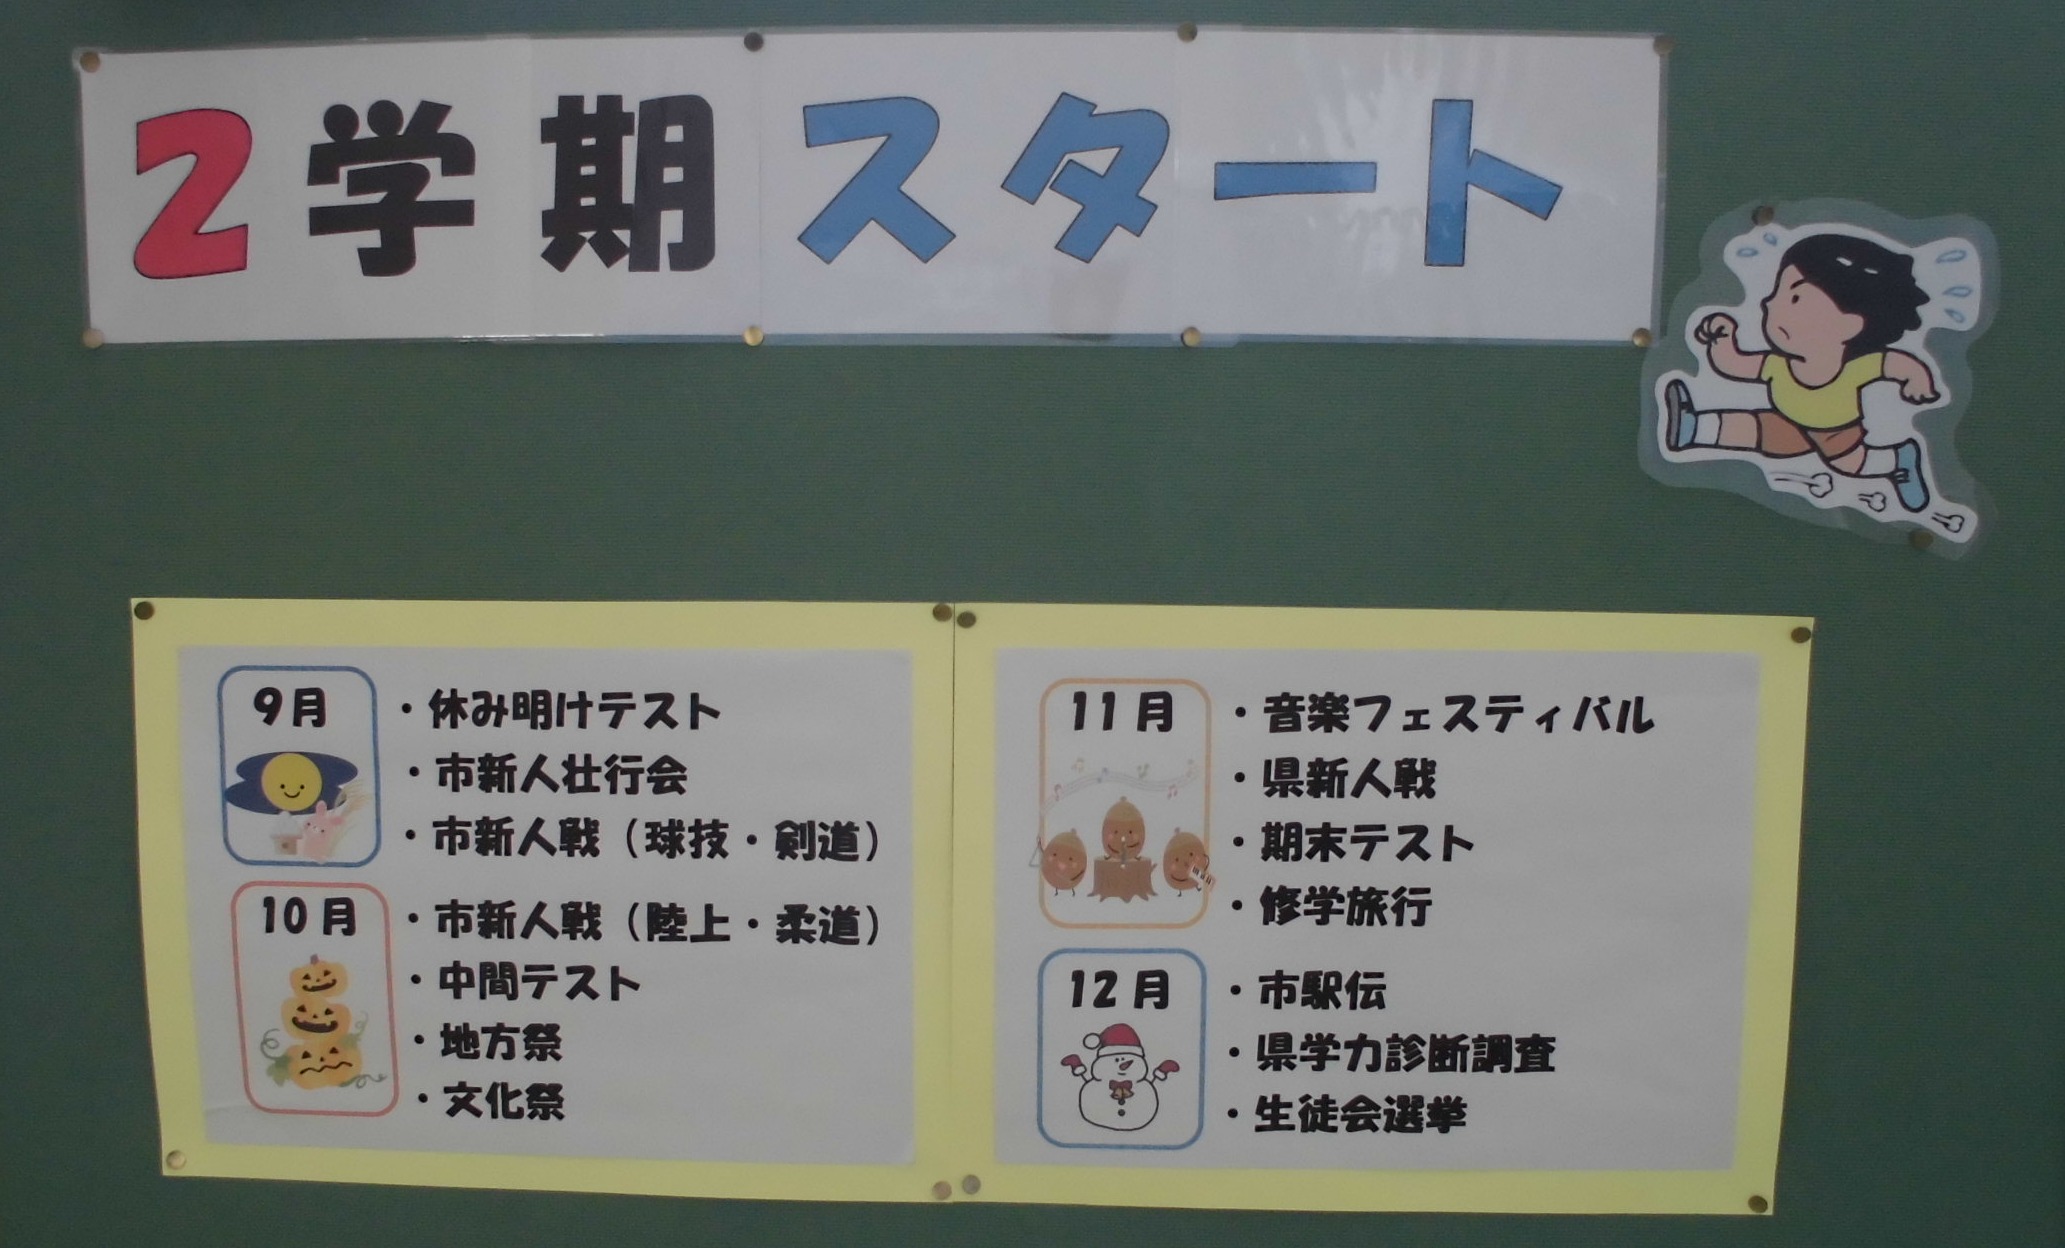 2学期スタート
9月
・休み明けテスト
・市新人壮行会
・市新人戦（球技・剣道）
10月
・市新人戦（陸上・柔道）
・中間テスト
・地方祭
・文化祭
11月
・音楽フェスティバル
・県新人戦
・期末テスト
・修学旅行
12月
・市駅伝
・県学力診断調査
・生徒会選挙